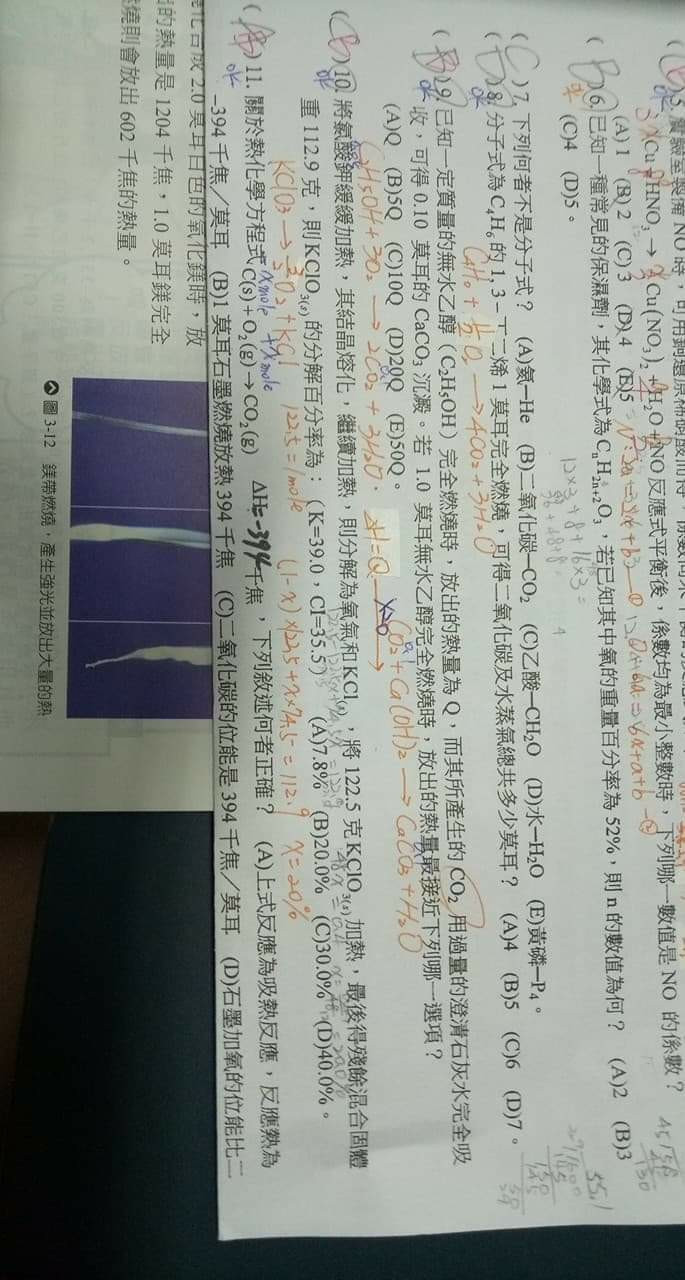 5. 實驗室製備 NO 時，可用銅還原稀硝酸而得，
Cu + HNO₃ → Cu(NO₃)₂ + H₂O + NO 反應式平衡後，係數均為最小整數時，下列哪一數值是 NO 的係數？
(A) 1 (B) 2 (C) 3 (D) 4 (E) 5
(B) 6. 已知一種常見的保濕劑，其化學式為 CₙH₂ₙ₊₂O₃，若已知其中氧的重量百分率為 52%，則 n 的數值為何？ (A)2 (B)3
(C)4 (D)5。
12×3+8+16×3=
(C) 7. 下列何者不是分子式？ (A)氦─He (B)二氧化碳─CO₂ (C)乙酸─CH₂O (D)水─H₂O (E)黃磷─P₄。
8. 分子式為 C₄H₆ 的 1, 3－丁二烯 1 莫耳完全燃燒，可得二氧化碳及水蒸氣總共多少莫耳？ (A)4 (B)5 (C)6 (D)7。
C₄H₆ + 11/2 O₂ → 4CO₂ + 3H₂O
(B) 9. 已知一定質量的無水乙醇（C₂H₅OH）完全燃燒時，放出的熱量為 Q，而其所產生的 CO₂ 用過量的澄清石灰水完全吸
收，可得 0.10 莫耳的 CaCO₃ 沉澱。若 1.0 莫耳無水乙醇完全燃燒時，放出的熱量最接近下列哪一選項？
(A)Q (B)5Q (C)10Q (D)20Q (E)50Q。
C₂H₅OH + 3O₂ → 2CO₂ + 3H₂O ΔH=Q
CO₂ + Ca(OH)₂ → CaCO₃ + H₂O
(B) 10. 將氯酸鉀緩緩加熱，其結晶熔化，繼續加熱，則分解為氧氣和 KCl₍ₛ₎，將 122.5 克 KClO₃₍ₛ₎ 加熱，最後得殘餘混合固體
重 112.9 克，則 KClO₃₍ₛ₎ 的分解百分率為：(K=39.0，Cl=35.5) (A)7.8% (B)20.0% (C)30.0% (D)40.0%。
KClO₃ → 3/2 O₂ + KCl 122.5=1mole (1-x)×122.5+x×74.5=112.9 x=20%
xmole xmole
11. 關於熱化學方程式 C(s)+O₂(g)→CO₂(g) ΔH=-394千焦，下列敘述何者正確？ (A)上式反應為吸熱反應，反應熱為
-394 千焦／莫耳 (B)1 莫耳石墨燃燒放熱 394 千焦 (C)二氧化碳的位能是 394 千焦／莫耳 (D)石墨加氧的位能比二
化合成 2.0 莫耳白色的氧化鎂時，放
的熱量是 1204 千焦，1.0 莫耳鎂完全
燃燒則會放出 602 千焦的熱量。
圖 3-12 鎂帶燃燒，產生強光並放出大量的熱